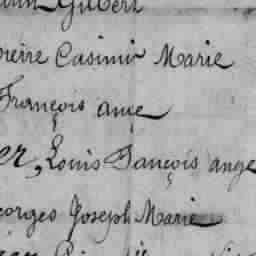 Gilbert
pierre Casimir Marie
François ame
er, Louis Fançois ange
eorges Joseph Marie